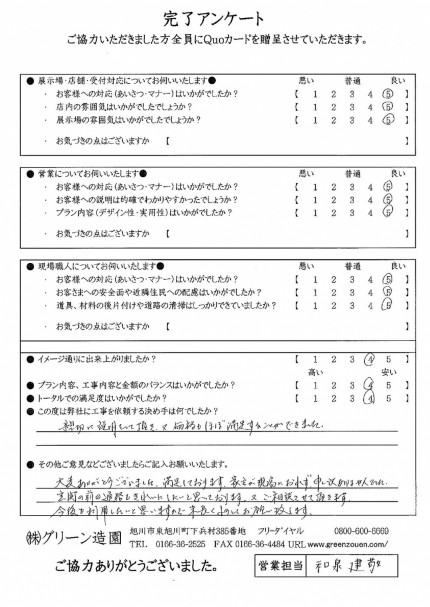 完了アンケート
ご協力いただきました方全員にQuoカードを贈呈させていただきます。
● 展示場・店舗・受付対応についてお伺いいたします● 悪い 普通 良い
・ お客様への対応(あいさつ・マナー)はいかがでしたか? 【 1 2 3 4 5 】
・ 店内の雰囲気はいかがでしたでしょうか? 【 1 2 3 4 5 】
・ 展示場の雰囲気はいかがでしたでしょうか? 【 1 2 3 4 5 】
・ お気づきの点はございますか 【 】
● 営業についてお伺いいたします● 悪い 普通 良い
・ お客様への対応(あいさつ・マナー)はいかがでしたか? 【 1 2 3 4 5 】
・ お客様への説明は的確でわかりやすかったでしょうか? 【 1 2 3 4 5 】
・ プラン内容(デザイン性・実用性)はいかがでしたか? 【 1 2 3 4 5 】
・ お気づきの点はございますか 【 】
● 現場職人についてお伺いいたします● 悪い 普通 良い
・ お客様への対応(あいさつ・マナー)はいかがでしたか? 【 1 2 3 4 5 】
・ お客さまへの安全面や近隣住民への配慮はいかがでしたか? 【 1 2 3 4 5 】
・ 道具、材料の後片付けや道路の清掃はしっかりできていましたか? 【 1 2 3 4 5 】
・ お気づきの点はございますか 【 】
● イメージ通りに出来上がりましたか? 【 1 2 3 4 5 】
高い 普通 安い
● プラン内容、工事内容と金額のバランスはいかがでしたか? 【 1 2 3 4 5 】
● トータルでの満足度はいかがでしたか? 【 1 2 3 4 5 】
● この度は弊社に工事を依頼する決め手は何でしたか?
親切に説明をして頂き、又価格もほぼ満足することができました。
● その他ご意見などございましたらご記入お願いいたします。
大変ありがとうございました。満足しております。
玄関の前の通路もきれいにしたいと思っております。又ご相談させて頂きます。
今後も利用したいと思いますので末長くよろしくお願い致します。
㈱グリーン造園 旭川市東旭川町下兵村385番地 フリーダイヤル 0800-600-6669
TEL 0166-36-2525 FAX 0166-36-4484 URL www.greenzouen.com/
ご協力ありがとうございました。 営業担当 和泉 建